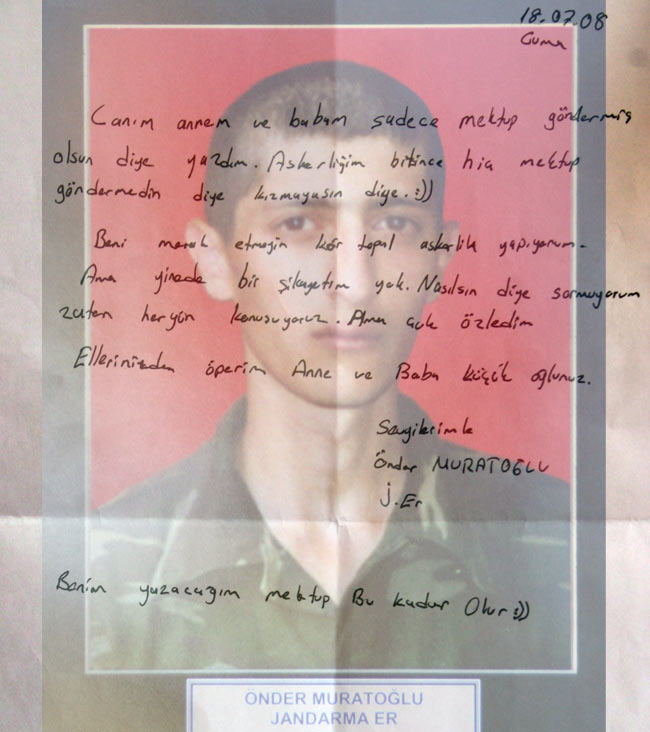 18.07.08
Cuma
Canım annem ve babam sadece mektup göndermiş
olsun diye yazdım. Askerliğim bitince hia mektup
göndermedin diye kızmayasın diye.:))
Beni merak etmeyin kör topal askerlik yapıyorum.
Ama yinede bir şikayetim yok. Nasılsın diye sormuyorum
zaten hergün konuşuyoruz. Ama çok özledim
Ellerinizden öperim Anne ve Baba küçük oğlunuz.
Sevgilerimle
Önder MURATOĞLU
J.Er
Benim yazacağım mektup Bu kadar Olur:))
ÖNDER MURATOĞLU
JANDARMA ER